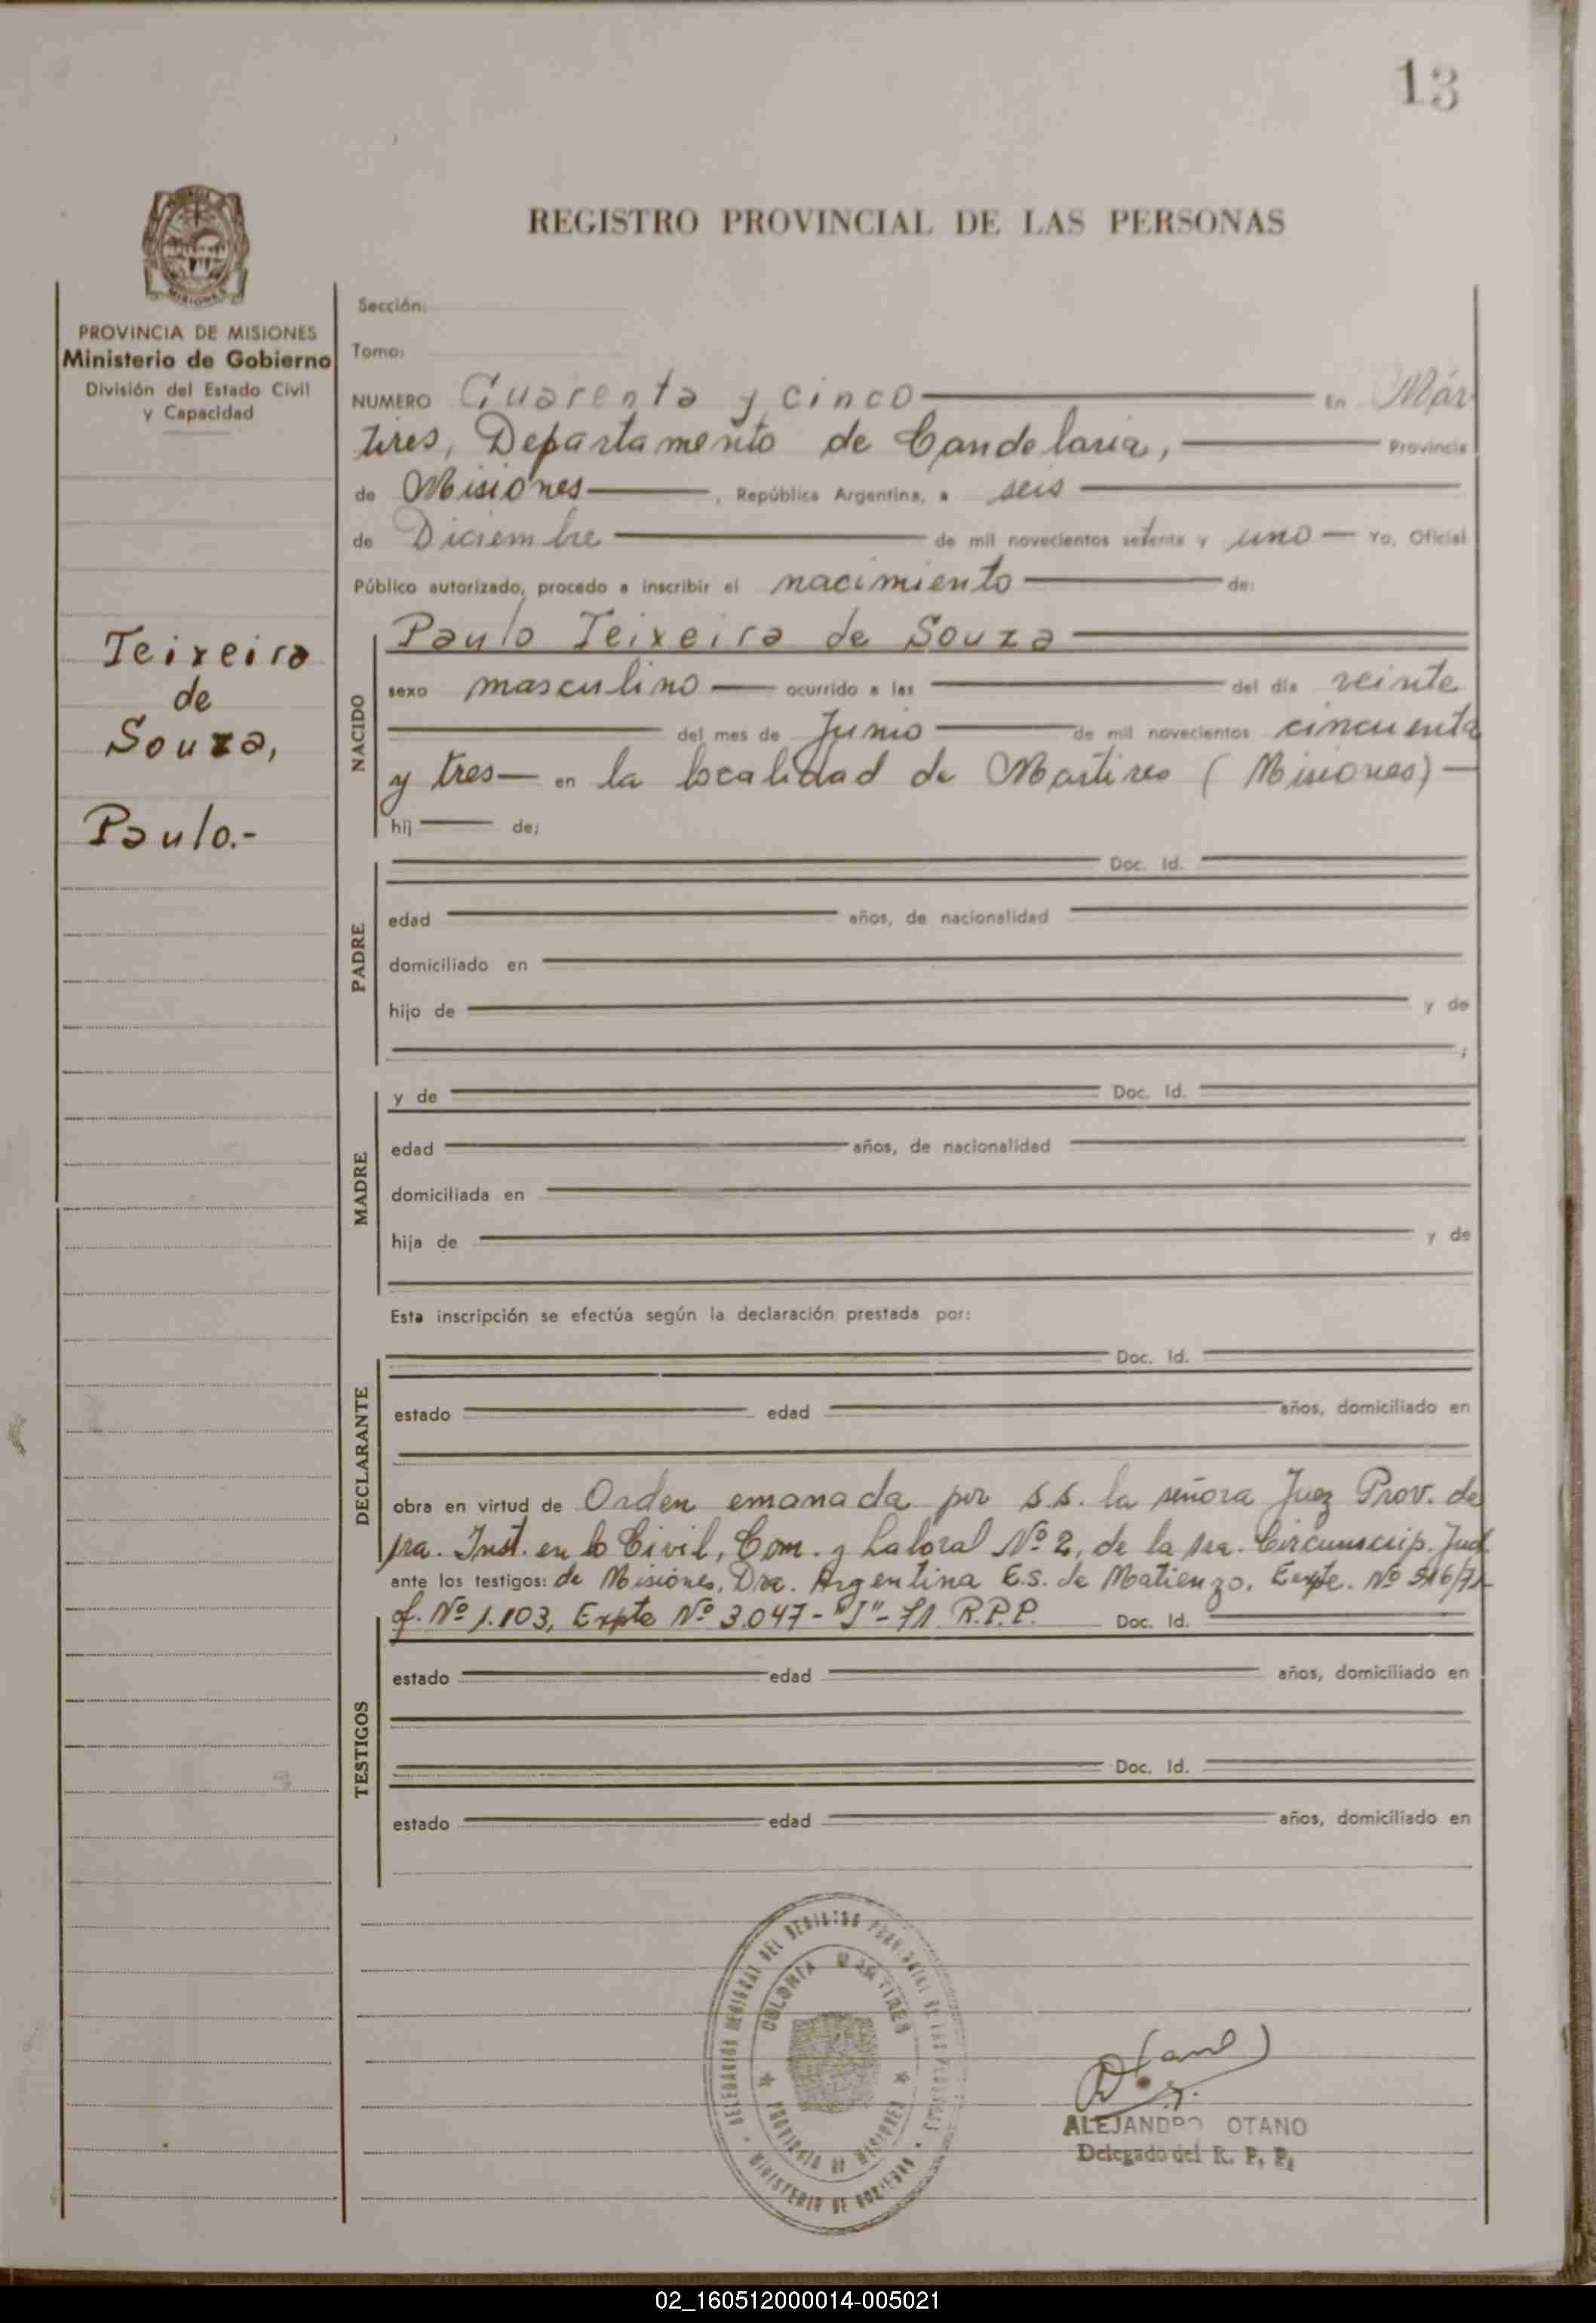 13
REGISTRO PROVINCIAL DE LAS PERSONAS
MISIONES
PROVINCIA DE MISIONES
Ministerio de Gobierno
División del Estado Civil
y Capacidad
Teixeira
de
Souza,
Paulo.-
Sección:
Tomo:
NUMERO Cuarenta y cinco En Már
tires, Departamento de Candelaria, Provincia
de Misiones, República Argentina, a seis
de Diciembre de mil novecientos setenta y uno Yo, Oficial
Público autorizado, procedo a inscribir el nacimiento de:
NACIDO
Paulo Teixeira de Souza
sexo masculino ocurrido a las del día veinte
del mes de Junio de mil novecientos cincuenta
y tres en la localidad de Martires (Misiones)
hij de:
PADRE
Doc. Id.
edad años, de nacionalidad
domiciliado en
hijo de y de
;
MADRE
y de Doc. Id.
edad años, de nacionalidad
domiciliada en
hija de y de
Esta inscripción se efectúa según la declaración prestada por:
DECLARANTE
Doc. Id.
estado edad años, domiciliado en
obra en virtud de Orden emanada por S.S. la señora Juez Prov. de
1ra. Inst. en lo Civil, Com. y Laboral Nº 2, de la 1ra. Circunscrip. Jud
ante los testigos: de Misiones, Dra. Argentina E.S. de Matienzo, Expte. Nº
of. Nº 1.103, Expte Nº 3.047-"J"-71 R.P.P. Doc. Id.
TESTIGOS
estado edad años, domiciliado en
Doc. Id.
estado edad años, domiciliado en
DELEGACION REGIONAL DEL REGISTRO PROVINCIAL DE LAS PERSONAS
COLONIA MARTIRES
PROVINCIA DE MISIONES
MINISTERIO DE GOBIERNO
ALEJANDRO OTANO
Delegado del R. P. P.
02_160512000014-005021